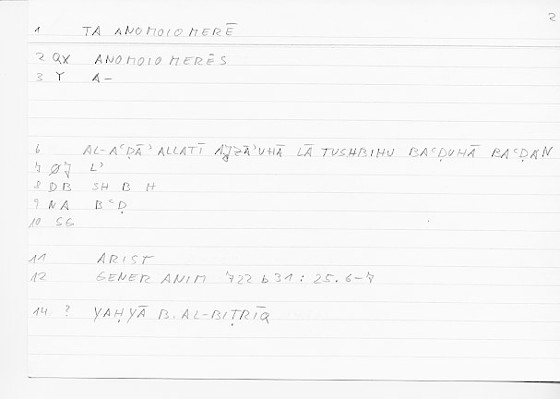 2
1 TA ANOMOIOMERĒ
2 QX ANOMOIOMERĒS
3 Y A-
6 AL-AʿḌĀʾ ALLATĪ AJZĀʾUHĀ LĀ TUSHBIHU BAʿḌUHĀ BAʿḌAN
7 ØJ Lʾ
8 DB SH B H
9 NA BʿḌ
10 SG
11 ARIST
12 GENER ANIM 722 b 31 : 25.6-7
14 ? YAḤYĀ B. AL-BIṬRĪQ